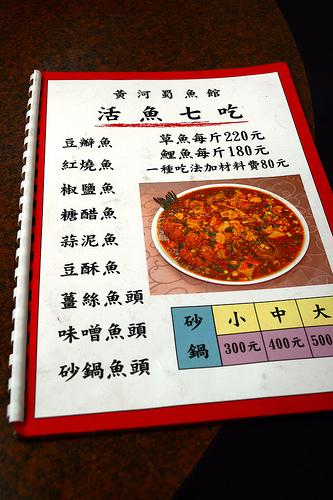 黃河蜀魚館
活魚七吃
草魚每斤220元
鯉魚每斤180元
一種吃法加材料費80元
豆瓣魚
紅燒魚
椒鹽魚
糖醋魚
蒜泥魚
豆酥魚
薑絲魚頭
味噌魚頭
砂鍋魚頭
砂鍋 小 中 大
300元 400元 500